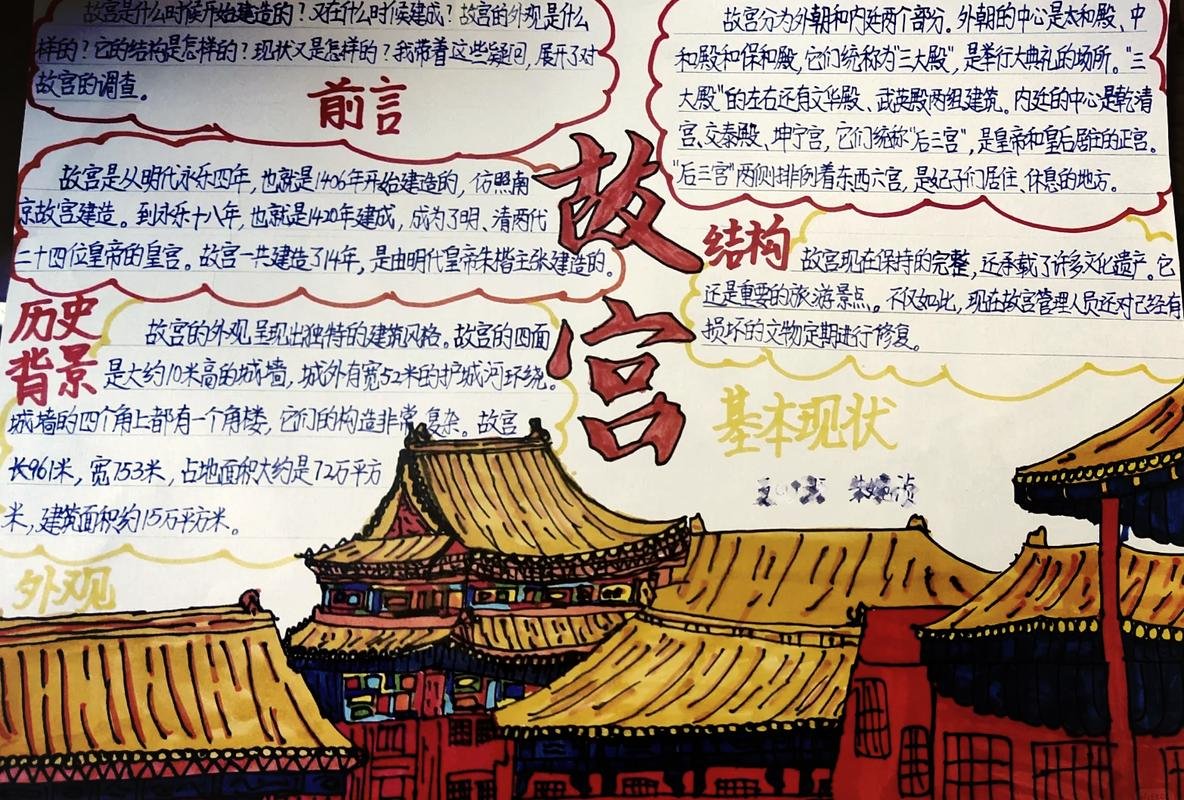 故宫是什么时候开始建造的？又在什么时候建成？故宫的外观是什么
样的？它的结构是怎样的？现状又是怎样的？我带着这些疑问，展开了对
故宫的调查。
前言
故宫是从明代永乐四年，也就是1406年开始建造的，仿照南
京故宫建造。到永乐十八年，也就是1420年建成，成为了明、清两代
二十四位皇帝的皇宫。故宫一共建造了14年，是由明代皇帝朱棣主张建造的。
历史
背景
故宫的外观呈现出独特的建筑风格。故宫的四面
是大约10米高的城墙，城外有宽52米的护城河环绕。
城墙的四个角上都有一个角楼，它们的构造非常复杂。故宫
长961米，宽753米，占地面积大约是72万平方
米，建筑面积约15万平方米。
外观
故
宫
故宫分为外朝和内廷两个部分。外朝的中心是太和殿、中
和殿和保和殿，它们统称为“三大殿”，是举行大典礼的场所。“三
大殿”的左右还有文华殿、武英殿两组建筑。内廷的中心是乾清
宫、交泰殿、坤宁宫，它们统称“后三宫”，是皇帝和皇后居住的正宫。
“后三宫”两侧排列着东西六宫，是妃子们居住、休息的地方。
结构
故宫现在保持的完整，还承载了许多文化遗产。它
还是重要的旅游景点。不仅如此，现在故宫管理人员还对已经有
损坏的文物定期进行修复。
基本现状